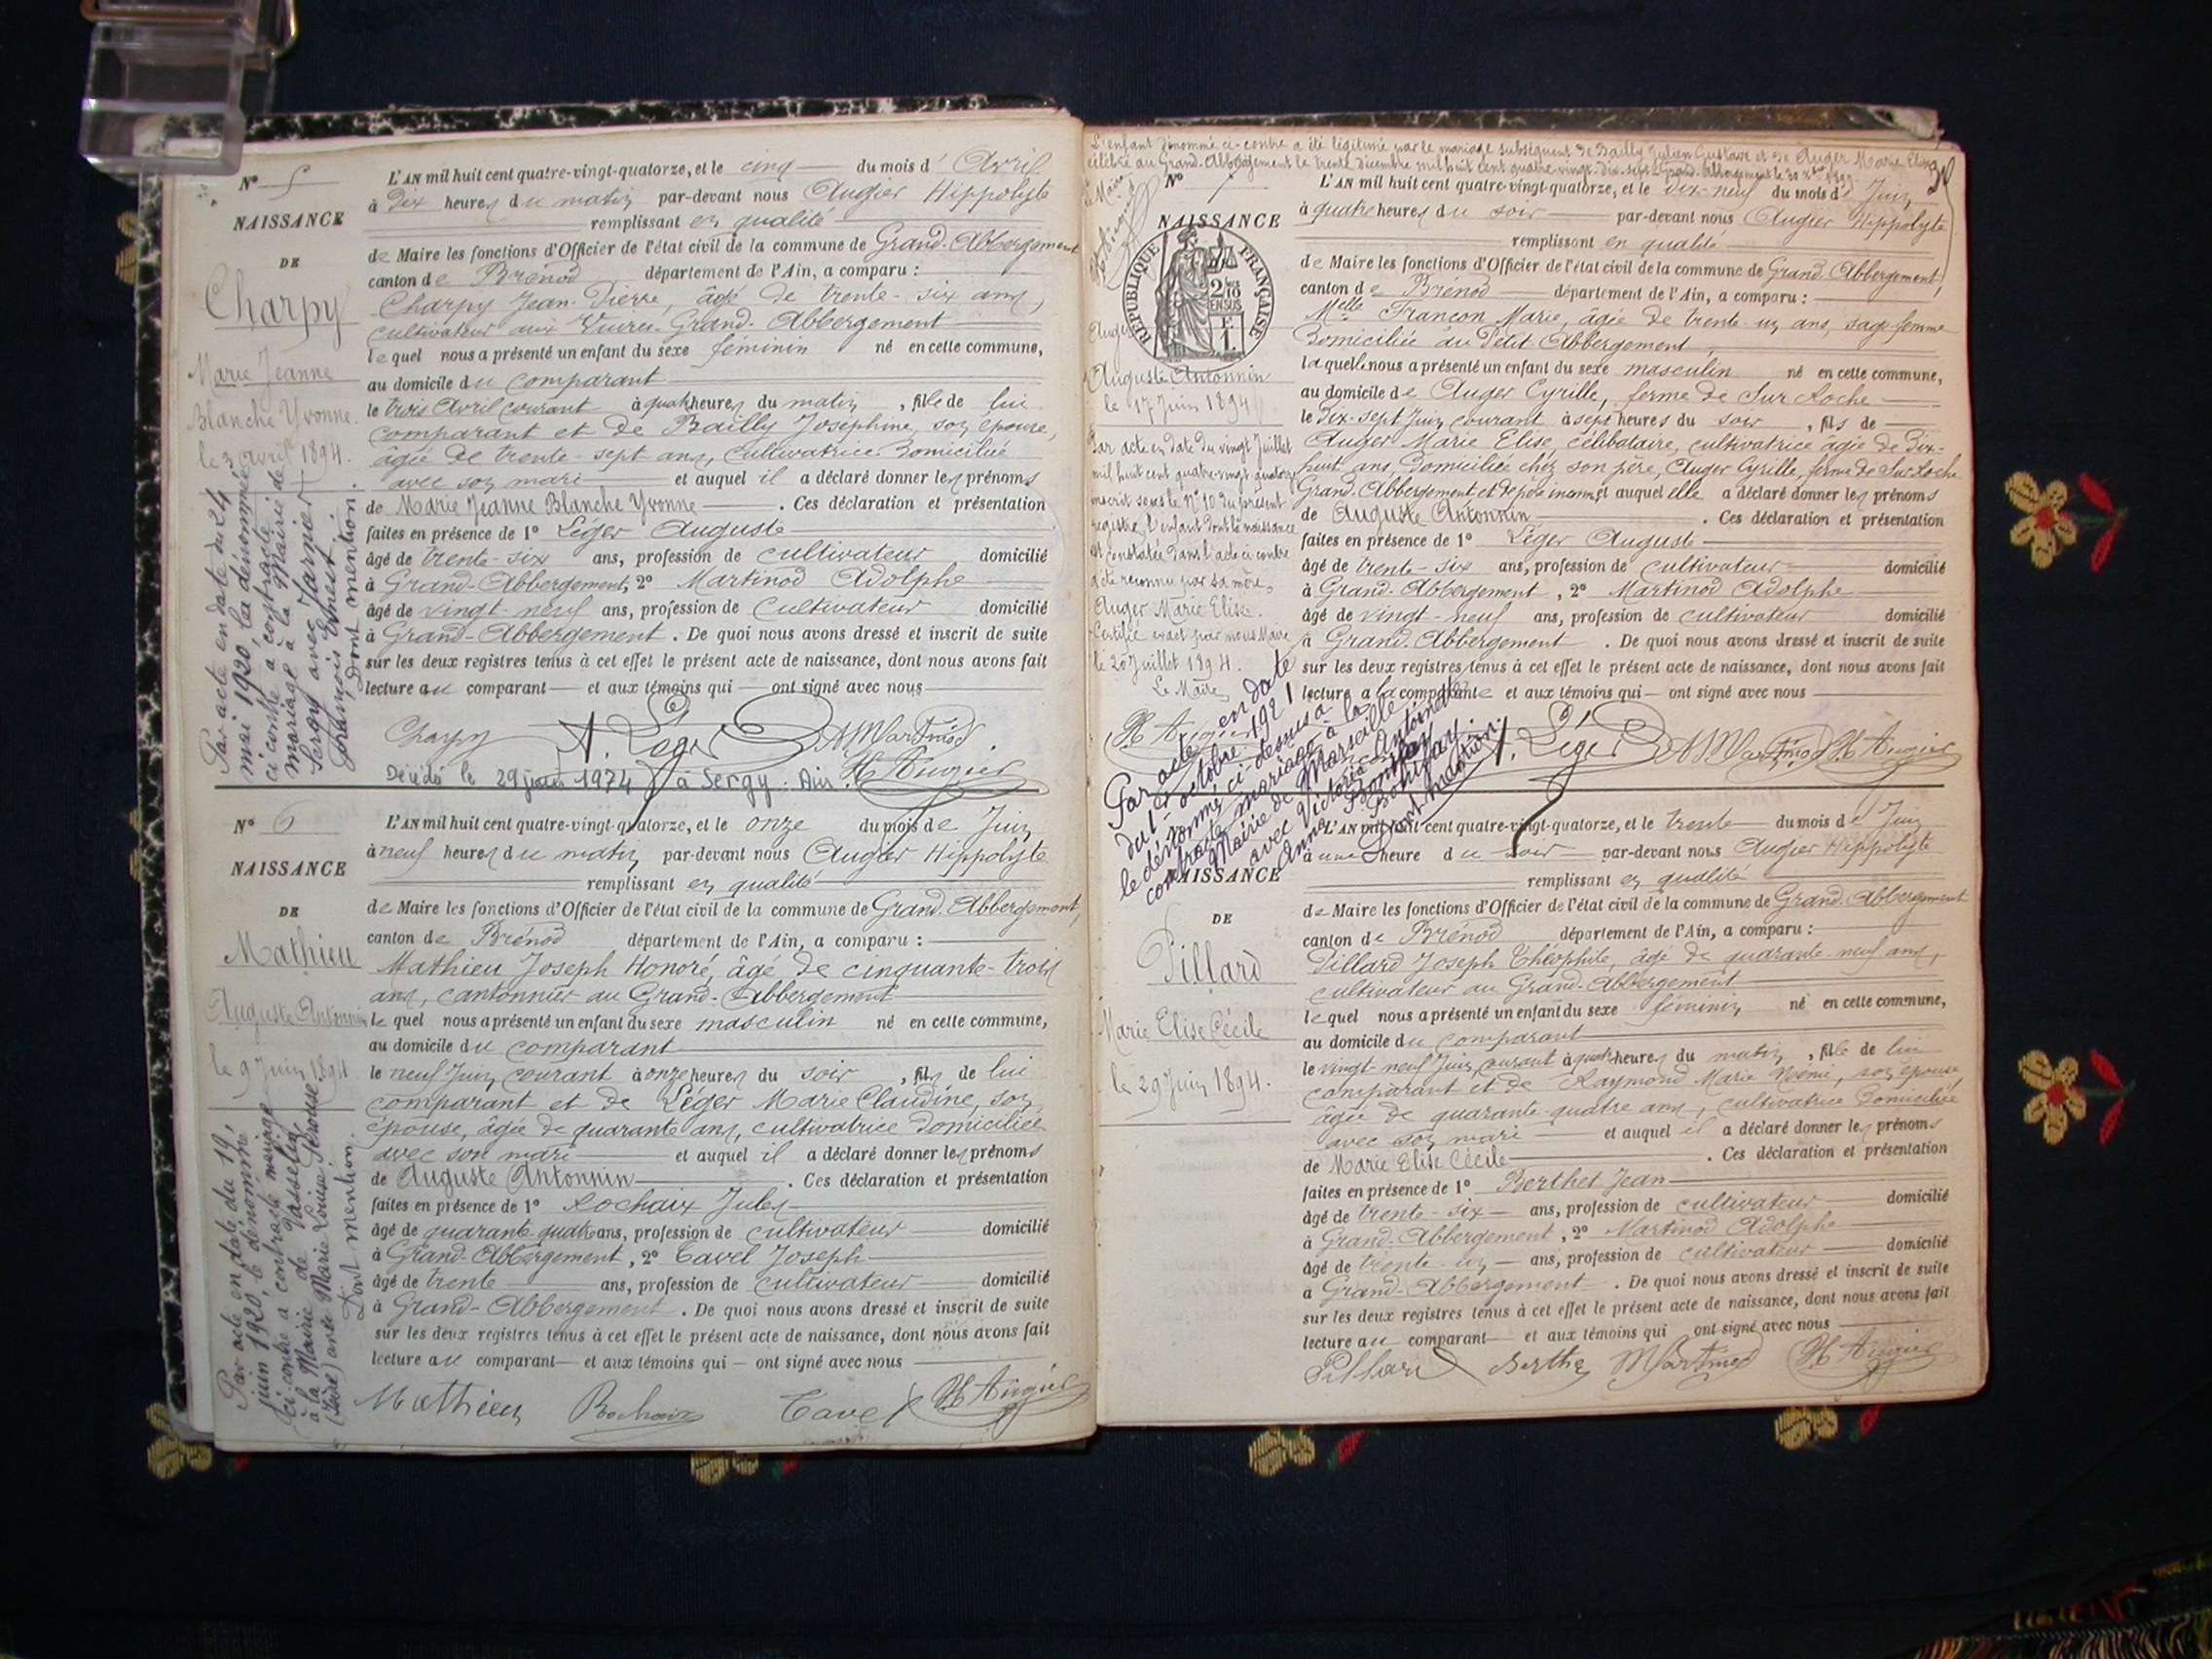 N° 5
NAISSANCE
DE
Charpy
Marie Jeanne
Blanche Yvonne
le 3 avril 1894.
Par acte en date du 24
mai 1920, la dénommée
ci contre a contracté
mariage à la Mairie de
Sergy avec Jarnier
François Ernest.
Dont mention
L'AN mil huit cent quatre-vingt-quatorze, et le cinq du mois d' Avril
à dix heures du matin par-devant nous Augier Hippolyte
remplissant en qualité
de Maire les fonctions d'Officier de l'état civil de la commune de Grand-Abbergement
canton de Brénod département de l'Ain, a comparu :
Charpy Jean-Pierre, âgé de trente-six ans,
cultivateur aux Grand-Abbergement
lequel nous a présenté un enfant du sexe féminin né en cette commune,
au domicile du comparant
le trois Avril courant à quatre heures du matin, fille de lui
comparant et de Bailly Joséphine, son épouse,
âgée de trente-sept ans, cultivatrice domiciliée
avec son mari et auquel il a déclaré donner les prénoms
de Marie Jeanne Blanche Yvonne. Ces déclaration et présentation
faites en présence de 1° Léger Auguste
âgé de trente-six ans, profession de cultivateur domicilié
à Grand-Abbergement, 2° Martinod Adolphe
âgé de vingt-neuf ans, profession de cultivateur domicilié
à Grand-Abbergement. De quoi nous avons dressé et inscrit de suite
sur les deux registres tenus à cet effet le présent acte de naissance, dont nous avons fait
lecture au comparant et aux témoins qui ont signé avec nous
Charpy A. Léger A Martinod
Décédé le 29 1974 à Sergy : Ain. H. Augier
N° 6
NAISSANCE
DE
Mathieu
Auguste Antonnin
le 9 Juin 1894
Par acte en date du 19,
juin 1920, le dénommé
ci-contre a contracté mariage
à la Mairie de
(Isère) avec Marie Louise
Dont mention.
L'AN mil huit cent quatre-vingt-quatorze, et le onze du mois de Juin
à neuf heures du matin par-devant nous Augier Hippolyte
remplissant en qualité
de Maire les fonctions d'Officier de l'état civil de la commune de Grand-Abbergement,
canton de Brénod département de l'Ain, a comparu :
Mathieu Joseph Honoré, âgé de cinquante-trois
ans, cantonnier au Grand-Abbergement
lequel nous a présenté un enfant du sexe masculin né en cette commune,
au domicile du comparant
le neuf Juin courant à onze heures du soir, fils de lui
comparant et de Léger Marie Claudine, son
épouse, âgée de quarante ans, cultivatrice domiciliée
avec son mari et auquel il a déclaré donner les prénoms
de Auguste Antonnin. Ces déclaration et présentation
faites en présence de 1° Rochaix Jules
âgé de quarante quatre ans, profession de cultivateur domicilié
à Grand-Abbergement, 2° Tavel Joseph
âgé de trente ans, profession de cultivateur domicilié
à Grand-Abbergement. De quoi nous avons dressé et inscrit de suite
sur les deux registres tenus à cet effet le présent acte de naissance, dont nous avons fait
lecture au comparant et aux témoins qui ont signé avec nous
Mathieu Rochaix Tavel H. Augier
L'enfant dénommé ci-contre a été légitimé par le mariage subséquent de Bailly Julien Gustave et de Auger Marie Elise
célébré au Grand-Abbergement le trente décembre mil huit cent quatre-vingt-dix-sept. Grand-Abbergement le 30 Xbre 1897.
Le Maire
H. Augier
N° 7
NAISSANCE
RÉPUBLIQUE FRANÇAISE
2/10 EN SUS
F. 1.
Auguste Antonnin
le 17 Juin 1894
Par acte en date du vingt Juillet
mil huit cent quatre-vingt quatorze
inscrit sous le N° 10 du présent
registre, l'enfant dont la naissance
est constatée dans l'acte ci contre
a été reconnu par sa mère,
Auger Marie Elise.
Certifié exact par nous Maire
le 20 Juillet 1894.
Le Maire
H. Augier
Par acte en date
du 1er octobre 1921
le dénommé ci-dessus a
contracté mariage à la
Mairie de Marseille
avec Victoria Antoinette
Anna
Dont mention.
L'AN mil huit cent quatre-vingt-quatorze, et le dix-neuf du mois de Juin
à quatre heures du soir par-devant nous Augier Hippolyte
remplissant en qualité
de Maire les fonctions d'Officier de l'état civil de la commune de Grand-Abbergement,
canton de Brénod département de l'Ain, a comparu :
Melle Francon Marie, âgée de trente-un ans, sage-femme
domiciliée au Petit-Abbergement,
laquelle nous a présenté un enfant du sexe masculin né en cette commune,
au domicile de Auger Cyrille, ferme de Sur Roche
le dix-sept Juin courant à sept heures du soir, fils de
Auger Marie Elise, célibataire, cultivatrice âgée de dix-
huit ans, domiciliée chez son père, Auger Cyrille, ferme de Sur Roche
Grand-Abbergement, et de père inconnu, et auquel elle a déclaré donner les prénoms
de Auguste Antonnin. Ces déclaration et présentation
faites en présence de 1° Léger Auguste
âgé de trente-six ans, profession de cultivateur domicilié
à Grand-Abbergement, 2° Martinod Adolphe
âgé de vingt-neuf ans, profession de cultivateur domicilié
à Grand-Abbergement. De quoi nous avons dressé et inscrit de suite
sur les deux registres tenus à cet effet le présent acte de naissance, dont nous avons fait
lecture à la comparante et aux témoins qui ont signé avec nous
A. Léger A Martinod H. Augier
NAISSANCE
DE
Pillard
Marie Elise Cécile
le 29 Juin 1894.
L'AN mil huit cent quatre-vingt-quatorze, et le trente du mois de Juin
à une heure du soir par-devant nous Augier Hippolyte
remplissant en qualité
de Maire les fonctions d'Officier de l'état civil de la commune de Grand-Abbergement
canton de Brénod département de l'Ain, a comparu :
Pillard Joseph Théophile, âgé de quarante-neuf ans,
cultivateur au Grand-Abbergement
lequel nous a présenté un enfant du sexe féminin né en cette commune,
au domicile du comparant
le vingt-neuf Juin courant à quatre heures du matin, fille de lui
comparant et de Raymond Marie Noémie, son épouse
âgée de quarante-quatre ans, cultivatrice domiciliée
avec son mari et auquel il a déclaré donner les prénoms
de Marie Elise Cécile. Ces déclaration et présentation
faites en présence de 1° Berthet Jean
âgé de trente-six ans, profession de cultivateur domicilié
à Grand-Abbergement, 2° Martinod Adolphe
âgé de trente-un ans, profession de cultivateur domicilié
à Grand-Abbergement. De quoi nous avons dressé et inscrit de suite
sur les deux registres tenus à cet effet le présent acte de naissance, dont nous avons fait
lecture au comparant et aux témoins qui ont signé avec nous
Pillard Berthet Martinod H. Augier